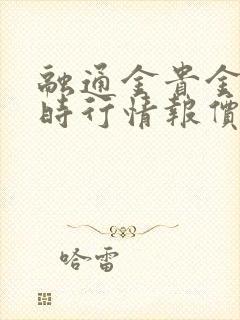 融通金貴金
時行情報價
哈雷